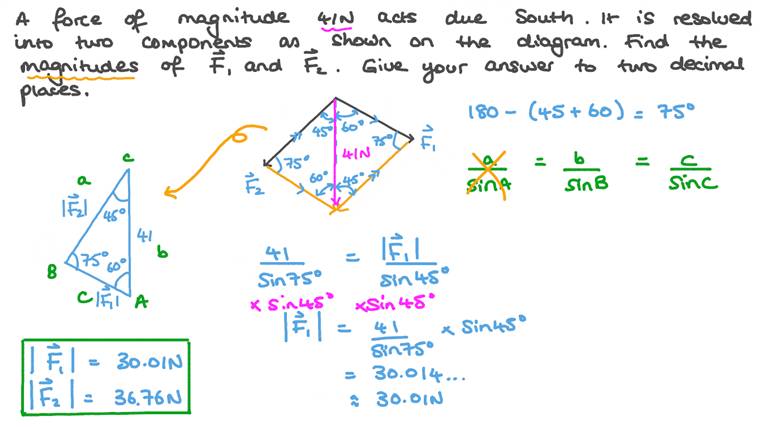 A force of magnitude 41N acts due South. It is resolved
into two components as shown on the diagram. Find the
magnitudes of F⃗₁ and F⃗₂. Give your answer to two decimal
places.
45° 60° 75° F⃗₁
75° 41N
F⃗₂ 60° 45°
180 - (45 + 60) = 75°
a/sinA = b/sinB = c/sinC
C
a
|F⃗₂| 45°
41 b
B 75° 60°
c |F⃗₁| A
41/sin75° = |F⃗₁|/sin45°
× sin45° × sin45°
|F⃗₁| = 41/sin75° × sin45°
= 30.014...
≈ 30.01N
|F⃗₁| = 30.01N
|F⃗₂| = 36.76N